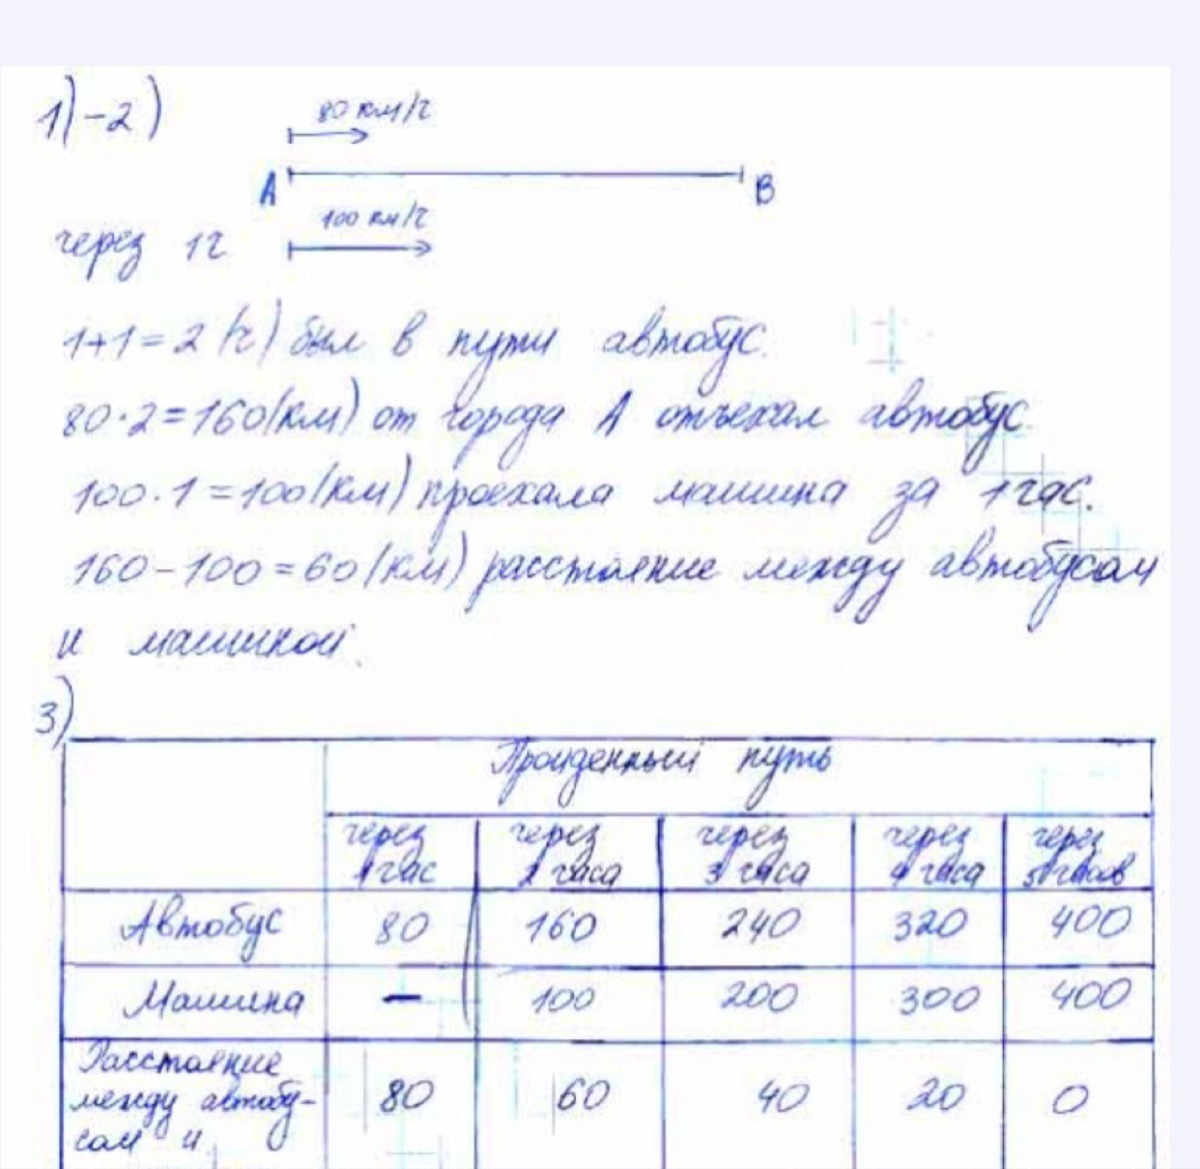 1)-2)
80 км/ч
А В
100 км/ч
через 1ч
1+1=2(ч) был в пути автобус.
80·2=160(км) от города А отъехал автобус.
100·1=100(км) проехала машина за 1 час.
160-100=60(км) расстояние между автобусом
и машиной.
3)
Пройденный путь
через через через через через
1 час 2 часа 3 часа 4 часа 5 часов
Автобус 80 160 240 320 400
Машина — 100 200 300 400
Расстояние
между автобу-
сом и
80 60 40 20 0